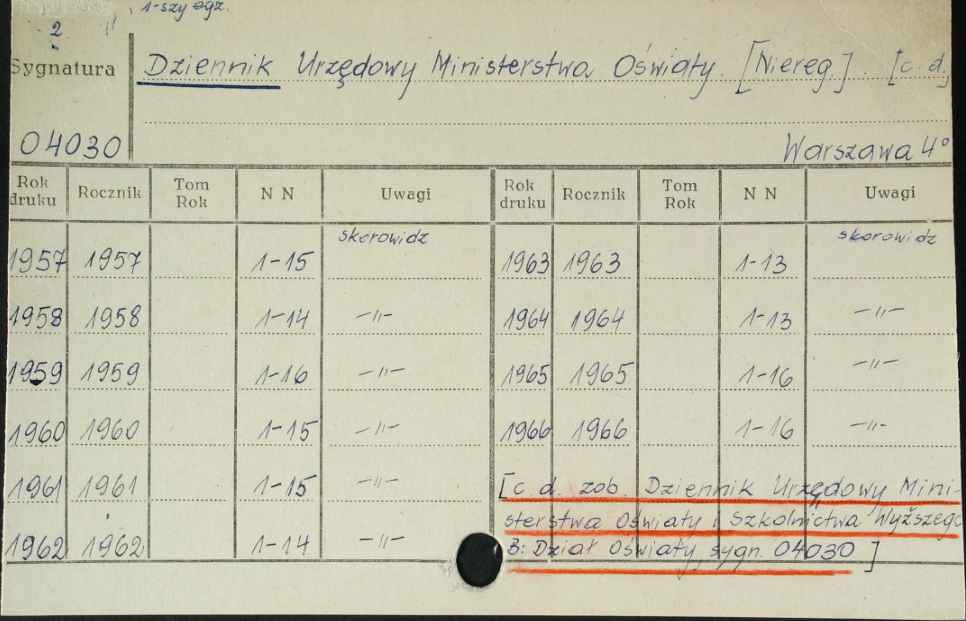 2 1-szy egz.
Sygnatura Dziennik Urzędowy Ministerstwa Oświaty. [Niereg.]. [c. d.]
04030 Warszawa 4°
Rok druku Rocznik Tom Rok N N Uwagi Rok druku Rocznik Tom Rok N N Uwagi
1957 1957 1-15 skorowidz 1963 1963 1-13 skorowidz
1958 1958 1-14 -"- 1964 1964 1-13 -"-
1959 1959 1-16 -"- 1965 1965 1-16 -"-
1960 1960 1-15 -"- 1966 1966 1-16 -"-
1961 1961 1-15 -"- [c d. zob. Dziennik Urzędowy Mini-
sterstwa Oświaty i Szkolnictwa Wyższego
1962 1962 1-14 -"- B: Dział Oświaty sygn. 04030]